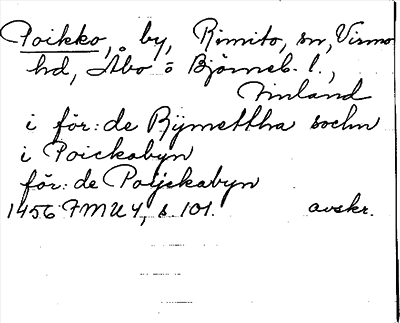 Poikko, by, Rimito, sn, Virmo
hd, Åbo o Björneb. l.,
Finland
i för: de Rijmettha sochn
i Poickabyn
för: de Poijckabyn
1456 FMU 4, s 101. avskr.